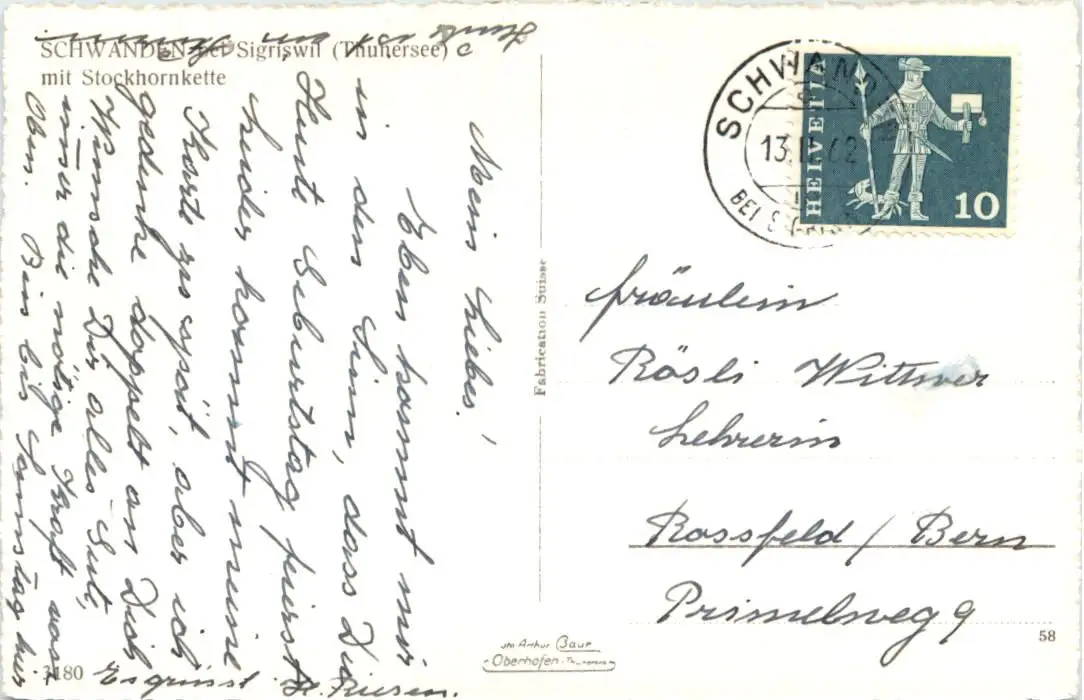 SCHWANDEN bei Sigriswil (Thunersee)
mit Stockhornkette
Mein Liebes!
Eben kommt mir
in den Sinn, dass Du
Heute Geburtstag feierst.
Leider kommt meine
Karte zu spät, aber ich
gedenke doppelt an Dich
Wünsche Dir alles Gute,
immer die nötige Kraft von
Oben. Bin bis Samstag hier
Es grüsst
Fabrication Suisse
SCHWANDEN
13. 62
BEI
HELVETIA
10
Fräulein
Rösli Wittwer
Lehrerin
Rossfeld / Bern
Primelweg 9
58
Arthur Baur
Oberhofen
3180